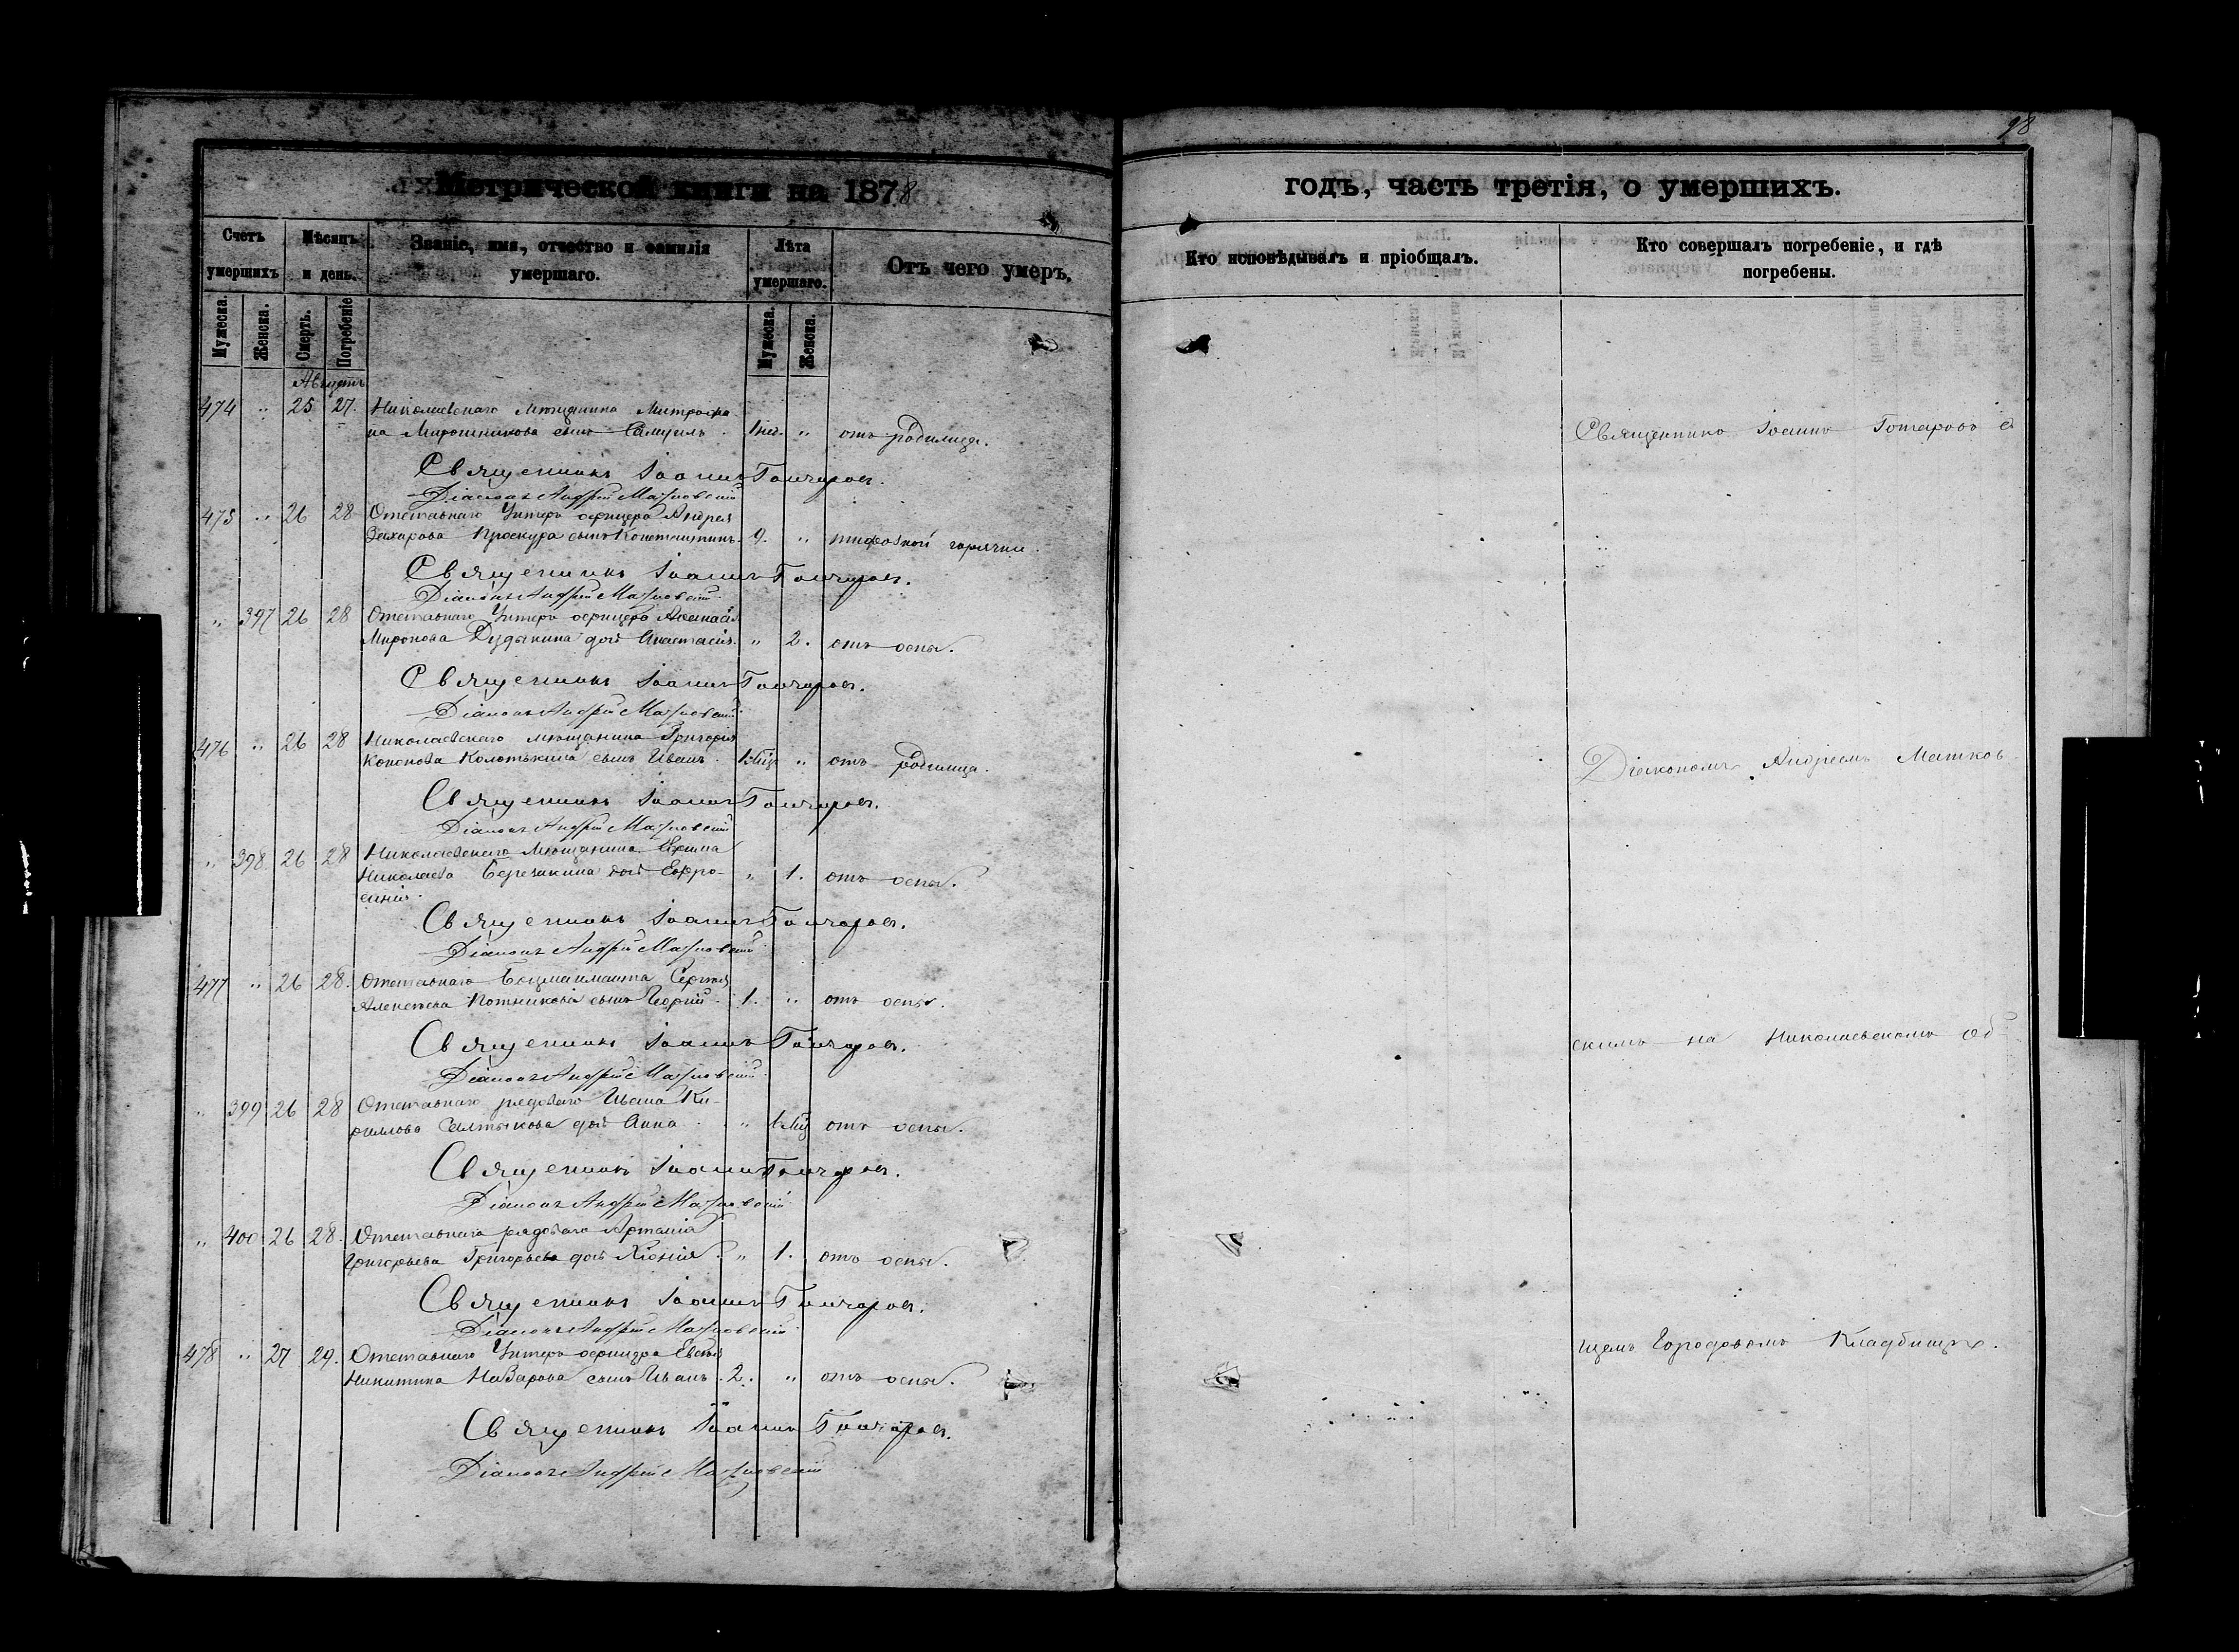 98
Метрической книги на 1878
годъ, часть третія, о умершихъ.
Счетъ умершихъ
Мѣсяцъ и день.
Званіе, имя, отчество и фамилія умершаго.
Лѣта умершаго.
Отъ чего умеръ,
Кто исповѣдывалъ и пріобщалъ.
Кто совершалъ погребеніе, и гдѣ погребены.
Мужеска.
Женска.
Смерть.
Погребеніе
Мужеска.
Женска.
Августъ
474 " 25 27. Николаевскаго мѣщанина Митрофа
на Мирошникова сынъ Самуилъ. " отъ родимца.
Священникъ Іоаннъ Гончаровъ.
Діаконъ Андрей Матковскій
475 " 26 28 Отставнаго Унтеръ офицера Андрея
Захарова Проскура сынъ Константинъ. 9. " тифозной горячки.
Священникъ Іоаннъ Гончаровъ.
Діаконъ Андрей Матковскій
" 397 26 28 Отставнаго Унтеръ офицера Аѳанасія
Миронова дочь Анастасія. " 2. отъ оспы.
Священникъ Іоаннъ Гончаровъ.
Діаконъ Андрей Матковскій
476 " 26 28 Николаевскаго мѣщанина Григорія
Кононова Колотькина сынъ Иванъ. " отъ родимца.
Священникъ Іоаннъ Гончаровъ.
Діаконъ Андрей Матковскій
" 398 26 28 Николаевскаго мѣщанина Ефима
Николаева дочь Евфро-
синія. " 1. отъ оспы.
Священникъ Іоаннъ Гончаровъ.
Діаконъ Андрей Матковскій
477 " 26 28. Отставнаго Боцманмата Сергѣя
Алексѣева сынъ Георгій. 1. " отъ оспы.
Священникъ Іоаннъ Гончаровъ.
Діаконъ Андрей Матковскій
" 399 26 28 Отставнаго рядоваго Ивана Ки-
риллова Салтыкова дочь Анна. " отъ оспы.
Священникъ Іоаннъ Гончаровъ.
Діаконъ Андрей Матковскій
" 400 26 28. Отставнаго рядоваго
Григорьева Григорьева дочь Хіонія. " 1. отъ оспы.
Священникъ Іоаннъ Гончаровъ.
Діаконъ Андрей Матковскій
478 " 27 29. Отставнаго Унтеръ офицера
Никитина Назарова сынъ Иванъ. 2. " отъ оспы.
Священникъ Іоаннъ Гончаровъ.
Діаконъ Андрей Матковскій
Священникъ Іоаннъ Гончаровъ съ
Діакономъ Андреемъ Матков-
скимъ на Николаевскомъ об-
щемъ Городовомъ Кладбищѣ.